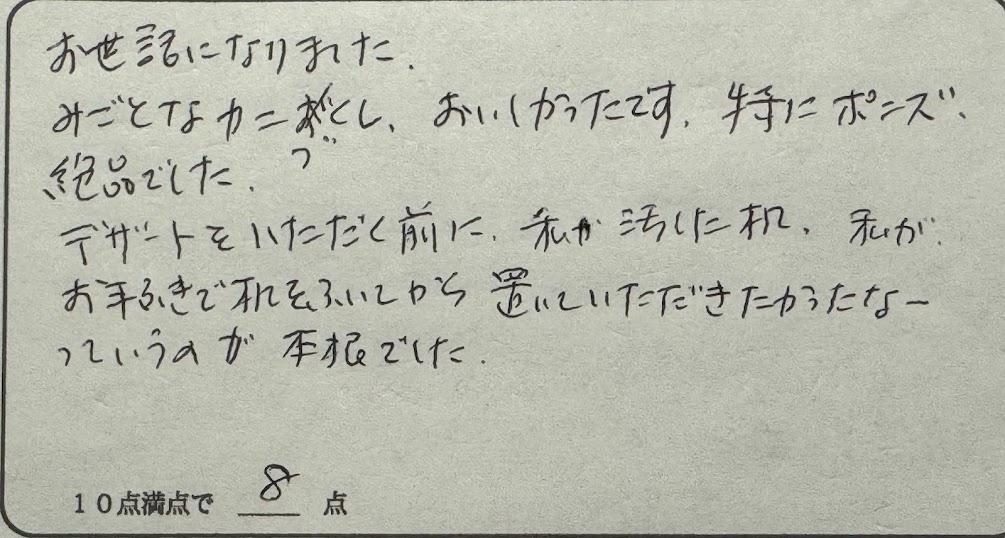 お世話になりました.
みごとなカニづくし、おいしかったです. 特にポンズ、
絶品でした.
デザートをいただく前に、私が汚した机、私が
お手ふきで机をふいてから置いていただきたかったなー
っていうのが本根でした.
10点満点で 8 点